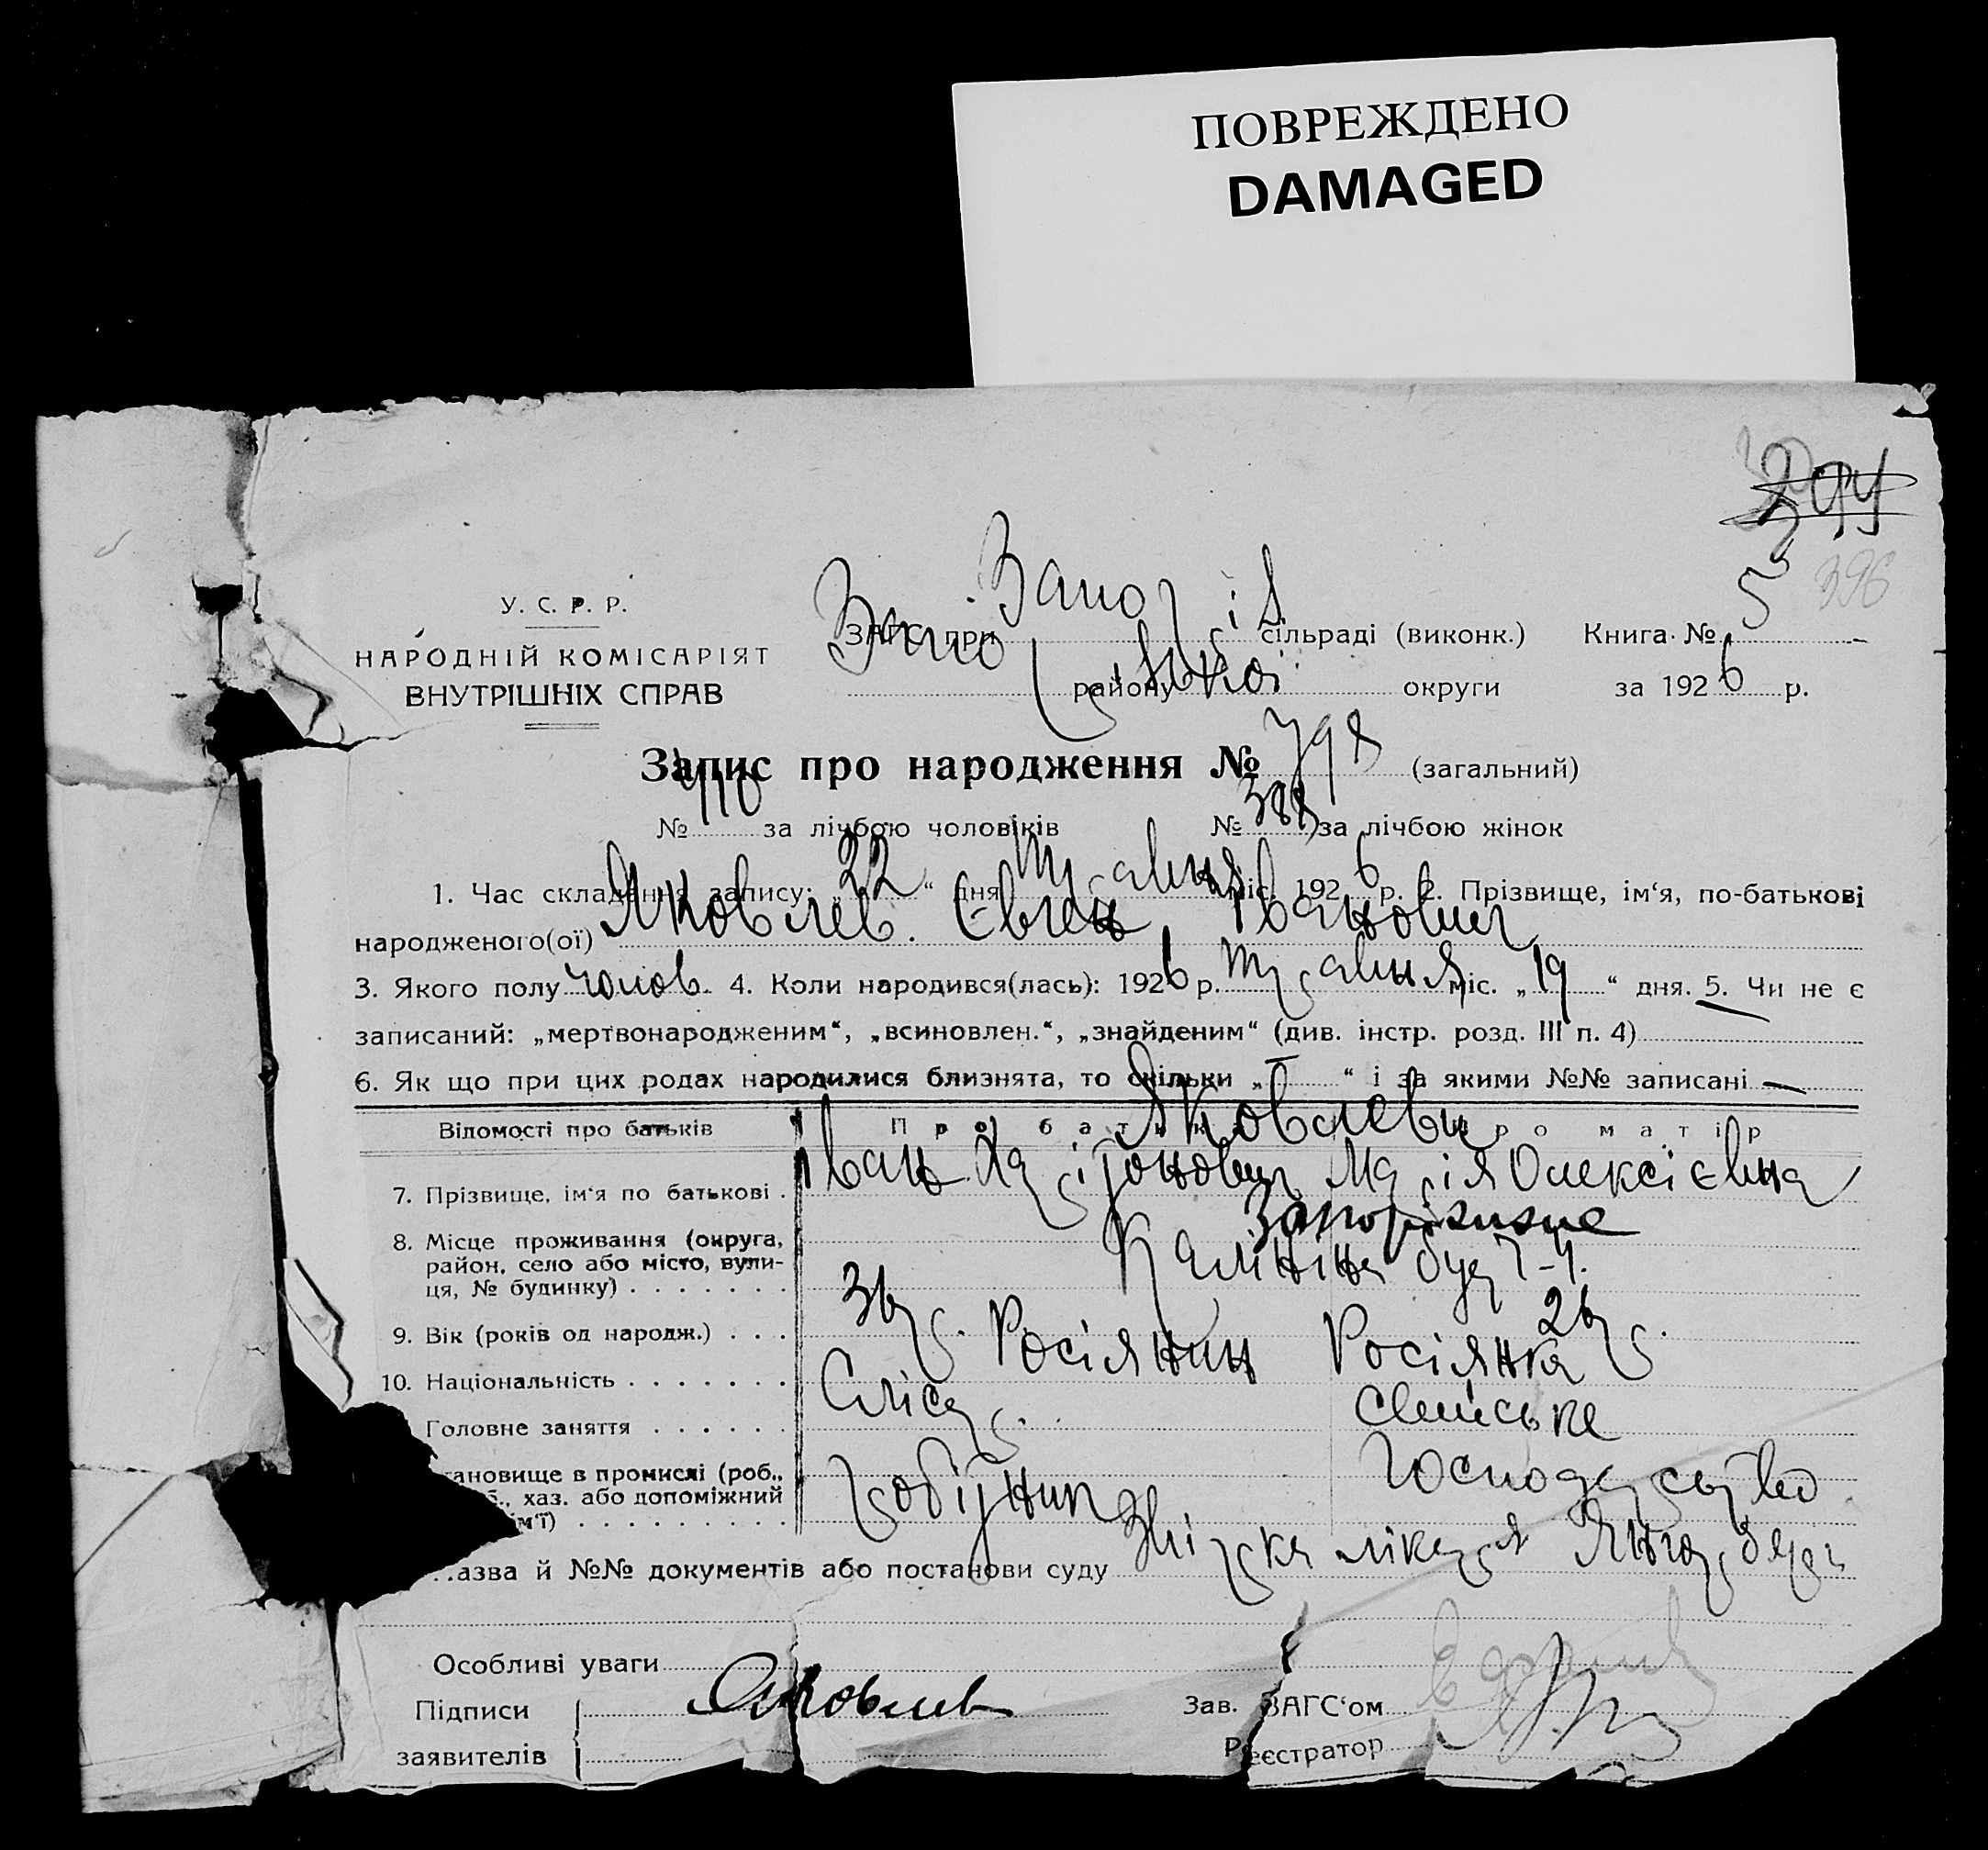 ПОВРЕЖДЕНО
DAMAGED
394
396
У. С. Р. Р.
НАРОДНІЙ КОМІСАРІЯТ
ВНУТРІШНІХ СПРАВ
ЗАГС при сільраді (виконк.) Книга № 5
району округи за 1926 р.
Запис про народження № 798 (загальний)
№ 410 за лічбою чоловіків № 388 за лічбою жінок
1. Час складення запису: „22“ дня травня міс. 1926 р. 2. Прізвище, ім‘я, по-батькові
народженого(ої) Яковлев Євген Іванович
3. Якого полу чолов. 4. Коли народився(лась): 1926 р. травня міс. „19“ дня. 5. Чи не є
записаний: „мертвонародженим“, „всиновлен.“, „знайденим“ (див. інстр. розд. III п. 4)
6. Як що при цих родах народилися близнята, то скільки „ “ і за якими №№ записані —
Відомості про батьків Про батька Про матір
Яковлеви
7. Прізвище, ім‘я по батькові Іван Харітонович Марія Олексієвна
8. Місце проживання (округа, район, село або місто, вулиця, № будинку) Запоріжжє
Калініна буд 7-4.
9. Вік (років од народж.) 36 р. 26 р.
10. Національність Росіянин Росіянка
Головне заняття Слісар. семейське
ановище в промислі (роб., б., хаз. або допоміжний ім‘ї) робітник господарство
азва й №№ документів або постанови суду Звірка лікаря
Особливі уваги
Підписи Яковлев Зав. ЗАГС‘ом
заявителів Реєстратор